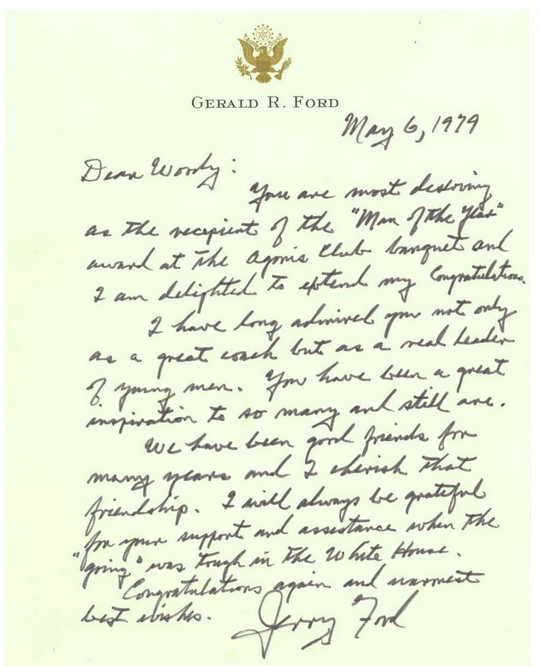 GERALD R. FORD
May 6, 1979
Dear Woody:
You are most deserving
as the recipient of the "Man of the Year"
award at the Agonis Club banquet and
I am delighted to extend my Congratulations.
I have long admired you not only
as a great coach but as a real leader
of young men. You have been a great
inspiration to so many and still are.
We have been good friends for
many years and I cherish that
friendship. I will always be grateful
for your support and assistance when the
"going" was tough in the White House.
Congratulations again and warmest
best wishes. Jerry Ford